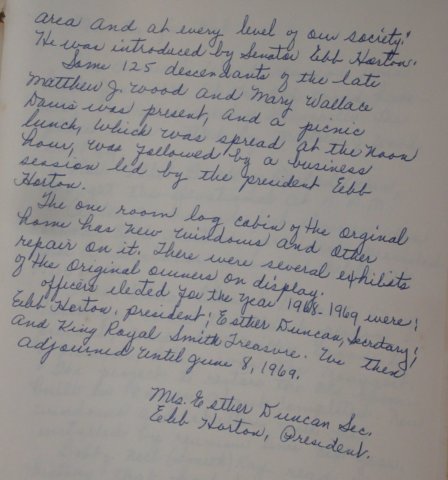 area and at every level of our society."
He was introduced by Senator Ebb Horton.
Some 125 descendants of the late
Matthew J. Wood and Mary Wallace
Davis was present, and a picnic
lunch, which was spread at the noon
hour, was followed by a business
session led by the president Ebb
Horton.
The one room log cabin of the Orginal
home has new windows and other
repair on it. There were several exhibits
of the Original owners on display.
officers elected for the year 1968-1969 were;
Ebb Horton, president; Esther Duncan, Secretary;
and King Royal Smith Treasure. We then
adjourned until June 8, 1969.
Mrs. Esther Duncan Sec.
Ebb Horton, President.